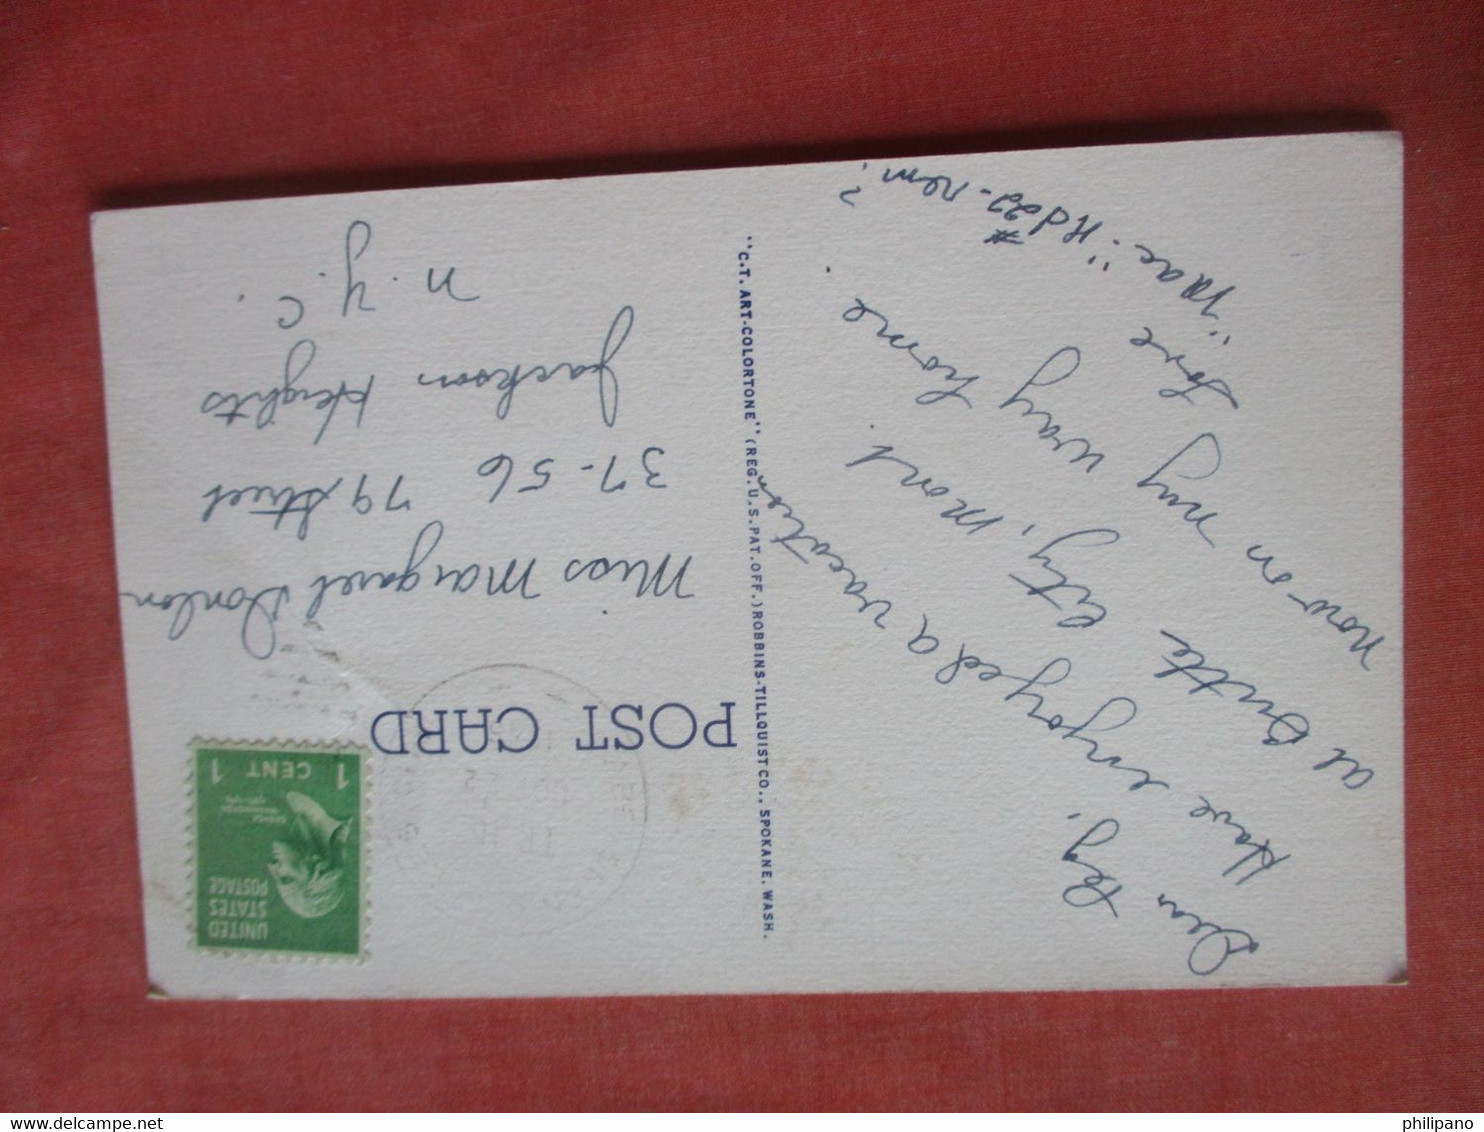 POST CARD
UNITED
STATES
POSTAGE
1 CENT 1
Dear Peg,
Have enjoyed a vacation
at Butte City, Mont.
now on my way home
Love
"Mac"
Miss Margaret Donlon
37-56 79 Street
Jackson Heights
N.Y.C.
"C.T. ART-COLORTONE" (REG. U.S. PAT. OFF.) ROBBINS-TILLQUIST CO., SPOKANE, WASH.
philipano